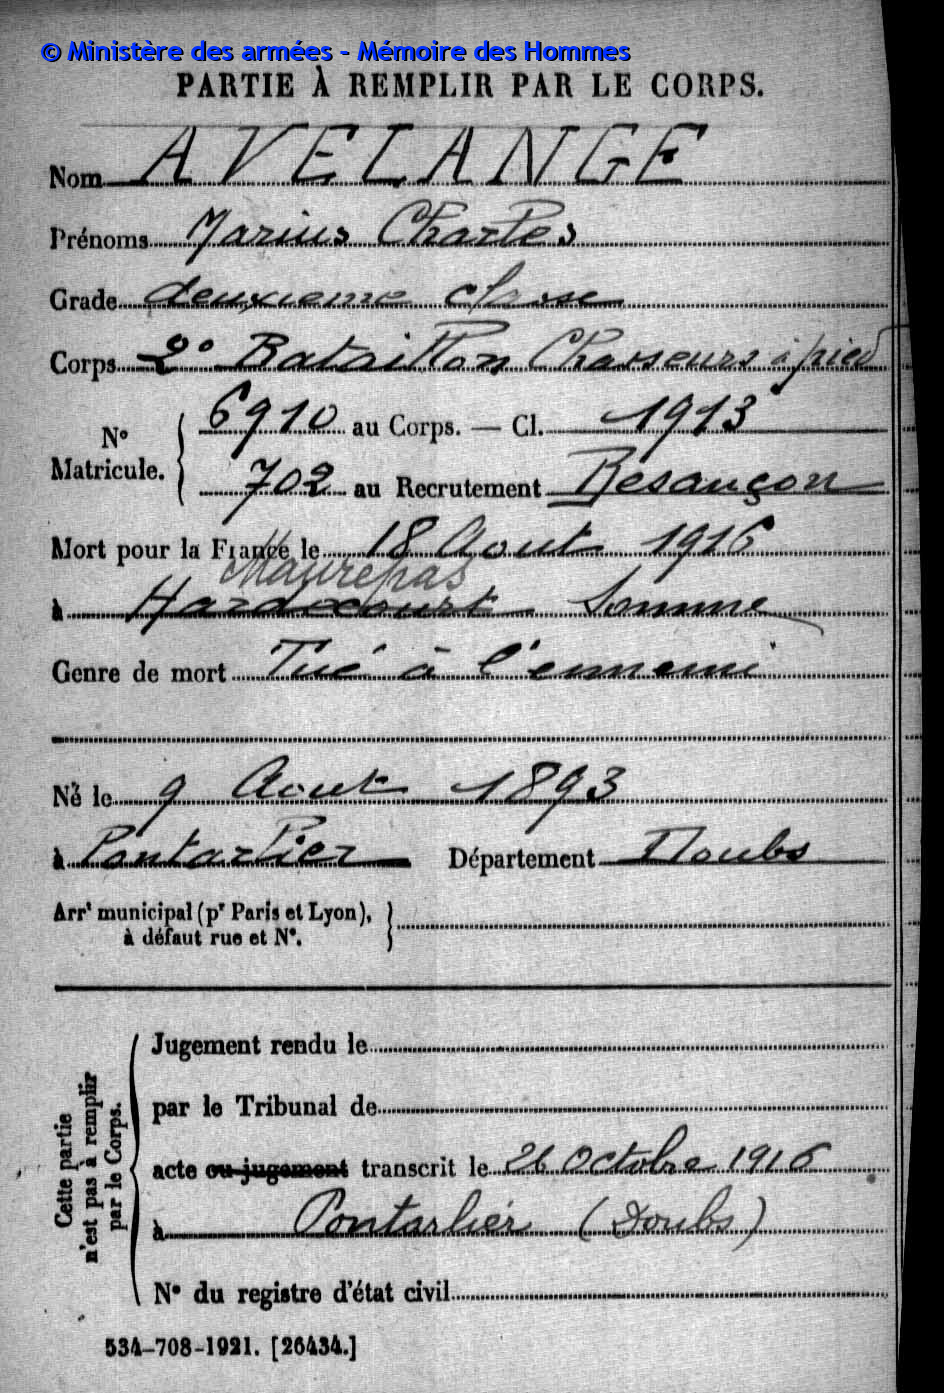 © Ministère des armées - Mémoire des Hommes
PARTIE À REMPLIR PAR LE CORPS.
Nom AVELANGE
Prénoms Marius Charles
Grade deuxieme classe
Corps 2e Bataillon Chasseurs à pied
No Matricule. 6910 au Corps. — Cl. 1913
702 au Recrutement Besançon
Mort pour la France le 18 Aout 1916
Maurepas
à Hardecourt Somme
Genre de mort Tué à l'ennemi
Né le 9 Aout 1893
à Pontarlier Département Doubs
Arrt municipal (pr Paris et Lyon),
à défaut rue et No.
Cette partie n'est pas à remplir par le Corps.
Jugement rendu le
par le Tribunal de
acte ou jugement transcrit le 26 Octobre 1916
à Pontarlier (Doubs)
No du registre d'état civil
534-708-1921. [26434.]